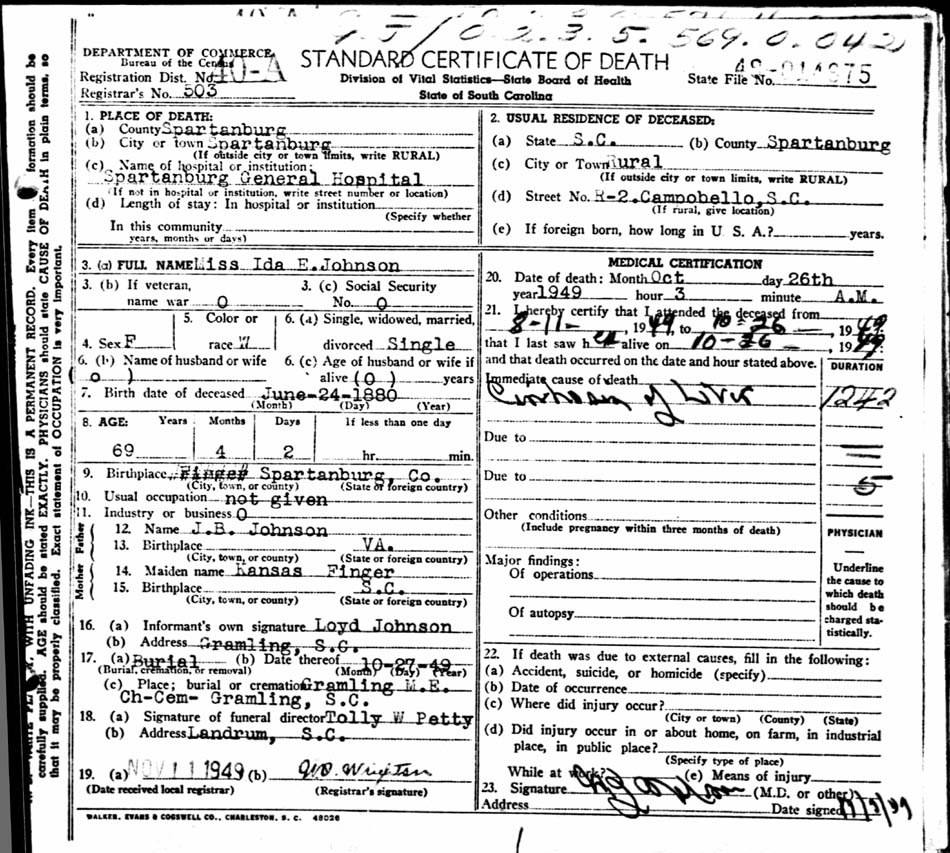 95/02.3.5. 569.0.042
DEPARTMENT OF COMMERCE
Bureau of the Census
Registration Dist. No. 40-A
Registrar's No. 503
STANDARD CERTIFICATE OF DEATH
Division of Vital Statistics—State Board of Health
State of South Carolina
State File No.
1. PLACE OF DEATH:
(a) County Spartanburg
(b) City or town Spartanburg
(If outside city or town limits, write RURAL)
(c) Name of hospital or institution:
Spartanburg General Hospital
(If not in hospital or institution, write street number or location)
(d) Length of stay: In hospital or institution
(Specify whether
In this community
years, months or days)
2. USUAL RESIDENCE OF DECEASED:
(a) State S.C. (b) County Spartanburg
(c) City or Town Rural
(If outside city or town limits, write RURAL)
(d) Street No. R-2.Campobello,S.C.
(If rural, give location)
(e) If foreign born, how long in U. S. A.? years.
3. (a) FULL NAME Miss Ida E.Johnson
3. (b) If veteran, 3. (c) Social Security
name war 0 No. 0
4. Sex F 5. Color or race W 6. (a) Single, widowed, married, divorced Single
6. (b) Name of husband or wife 6. (c) Age of husband or wife if
( 0 ) alive ( 0 ) years
7. Birth date of deceased June-24-1880
(Month) (Day) (Year)
8. AGE: Years Months Days If less than one day
69 4 2 hr. min.
9. Birthplace Spartanburg, Co.
(City, town, or county) (State or foreign country)
10. Usual occupation not given
11. Industry or business 0
Father
12. Name J.B. Johnson
13. Birthplace VA.
(City, town, or county) (State or foreign country)
Mother
14. Maiden name Kansas Finger
15. Birthplace S.C.
(City, town, or county) (State or foreign country)
16. (a) Informant's own signature Loyd Johnson
(b) Address Gramling, S.C.
17. (a) Burial (b) Date thereof 10-27-49
(Burial, cremation, or removal) (Month) (Day) (Year)
(c) Place; burial or cremation Gramling M.E.
Ch-Cem- Gramling, S.C.
18. (a) Signature of funeral director Tolly W Petty
(b) Address Landrum, S.C.
19. (a) NOV 11 1949 (b)
(Date received local registrar) (Registrar's signature)
MEDICAL CERTIFICATION
20. Date of death: Month Oct day 26th
year 1949 hour 3 minute A.M.
21. I hereby certify that I attended the deceased from
8-11-, 1949, to 10-26-, 1949
that I last saw her alive on 10-26-, 1949
and that death occurred on the date and hour stated above.
DURATION
Immediate cause of death
Cirrhosis of Liver 1242
Due to
Due to 5
Other conditions
(Include pregnancy within three months of death)
PHYSICIAN
Major findings:
Of operations
Of autopsy
Underline
the cause to
which death
should be
charged sta-
tistically.
22. If death was due to external causes, fill in the following:
(a) Accident, suicide, or homicide (specify)
(b) Date of occurrence
(c) Where did injury occur?
(City or town) (County) (State)
(d) Did injury occur in or about home, on farm, in industrial
place, in public place?
(Specify type of place)
While at work? (e) Means of injury
23. Signature (M.D. or other)
Address Date signed
WALKER, EVANS & COGSWELL CO., CHARLESTON, S. C. 48026
WITH UNFADING INK—THIS IS A PERMANENT RECORD. Every item formation should be
carefully supplied. AGE should be stated EXACTLY. PHYSICIANS should state CAUSE OF DEATH in plain terms, so
that it may be properly classified. Exact statement of OCCUPATION is very important.